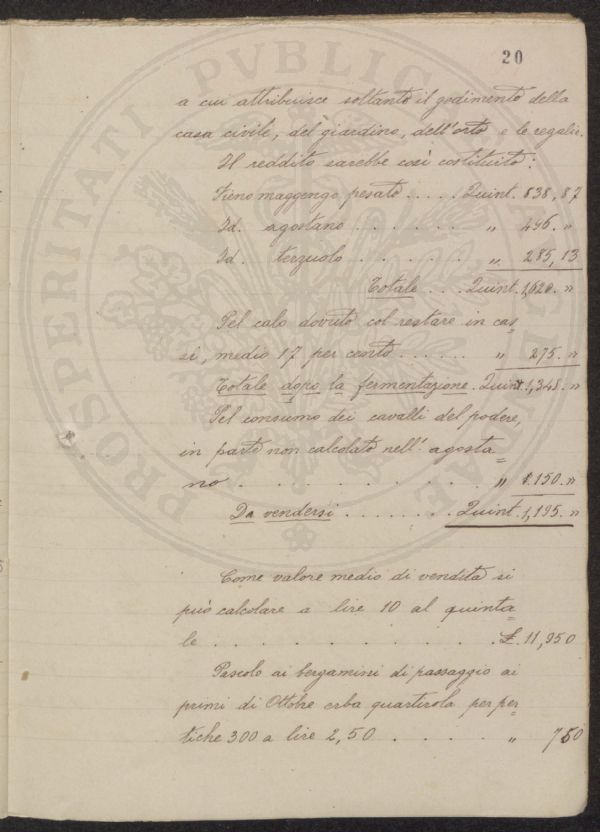 20
a cui attribuisce soltanto il godimento della
casa civile, del giardino, dell'orto e le regalie.
Il reddito sarebbe così costituito:
Fieno maggengo pesato . . . . . Quint. 838,87
Id. agostano . . . . . . . " 496. "
Id. terzuolo . . . . . . " 285,13
Totale . . . Quint. 1,620 "
Pel calo dovuto col restare in cas=
si, medio 17 per cento . . . . . . " 275. "
Totale dopo la fermentazione. Quint. 1,348. "
Pel consumo dei cavalli del podere,
in parte non calcolato nell' agosta=
no . . . . . . . . . . " 150. "
Da vendersi . . . . . . . . Quint. 1,195. "
Come valore medio di vendita si
può calcolare a lire 10 al quinta=
le . . . . . . . . . . . . £. 11,950
Pascolo ai bergamini di passaggio ai
primi di Ottobre erba quartirola per per=
tiche 300 a lire 2,50 . . . . . " 750
PROSPERITATI PVBLICAE